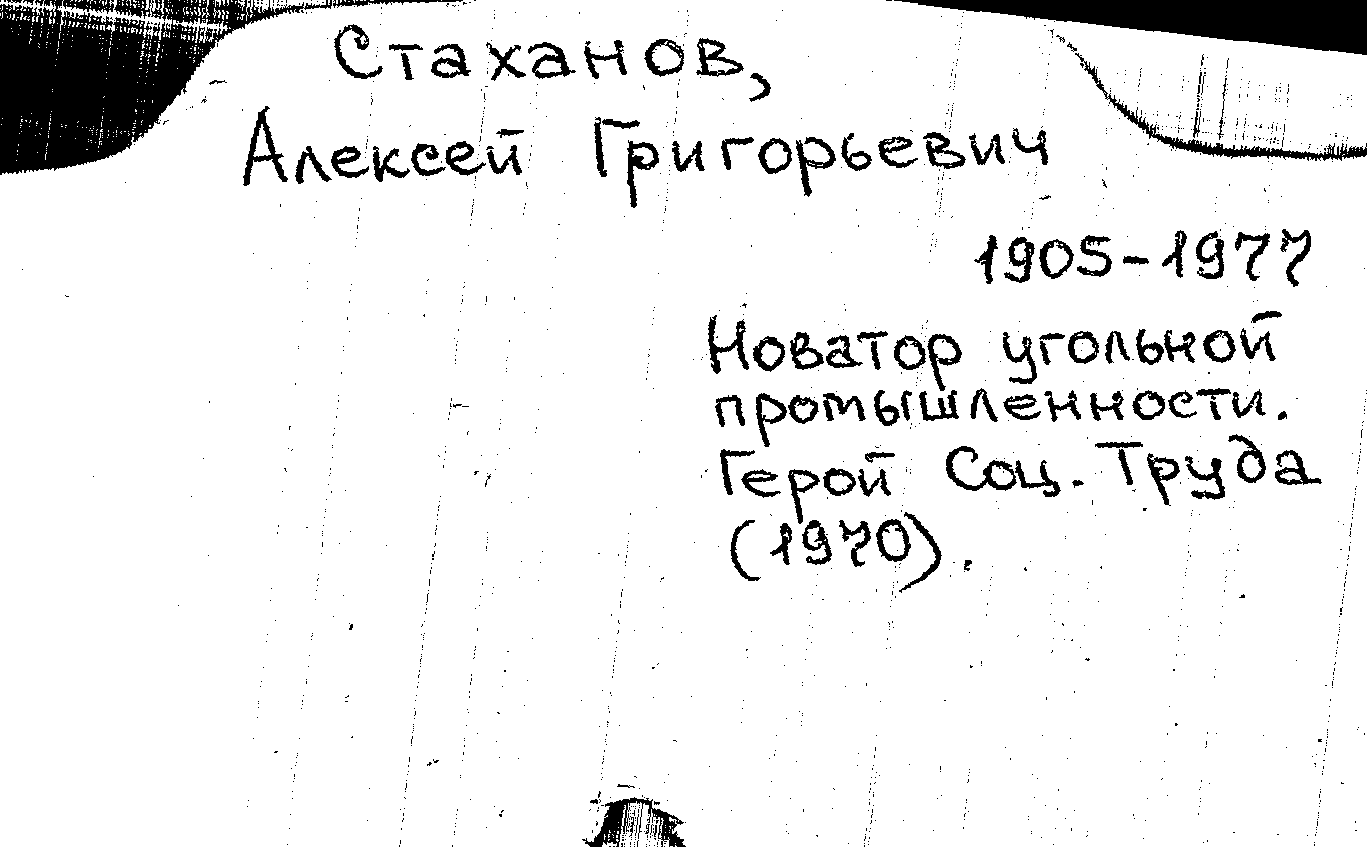 Стаханов,
Алексей Григорьевич
1905-1977
Новатор угольной
промышленности.
Герой Соц. Труда
(1970).